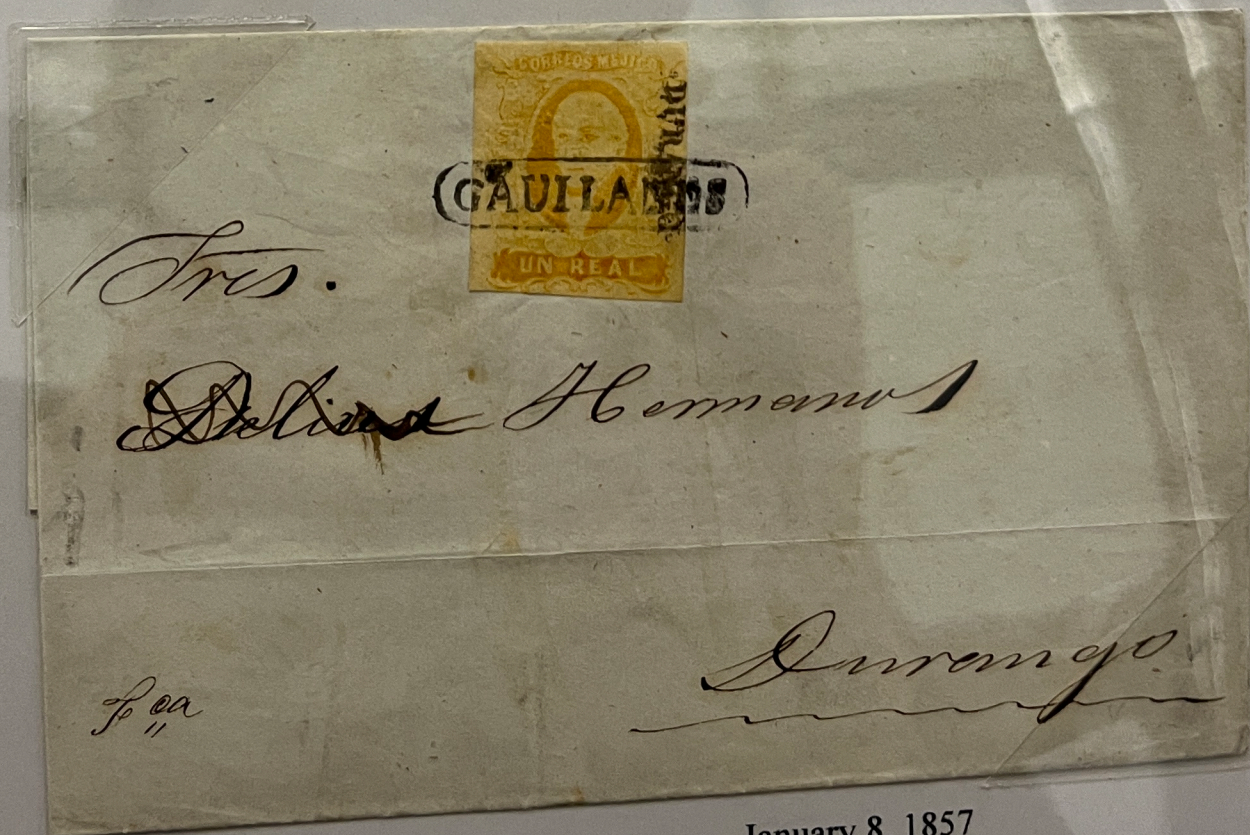 CORREOS MEJICO
DURANGO
GAUILANES
UN REAL
Sres.
Hermanos
Durango
Fca
January 8, 1857